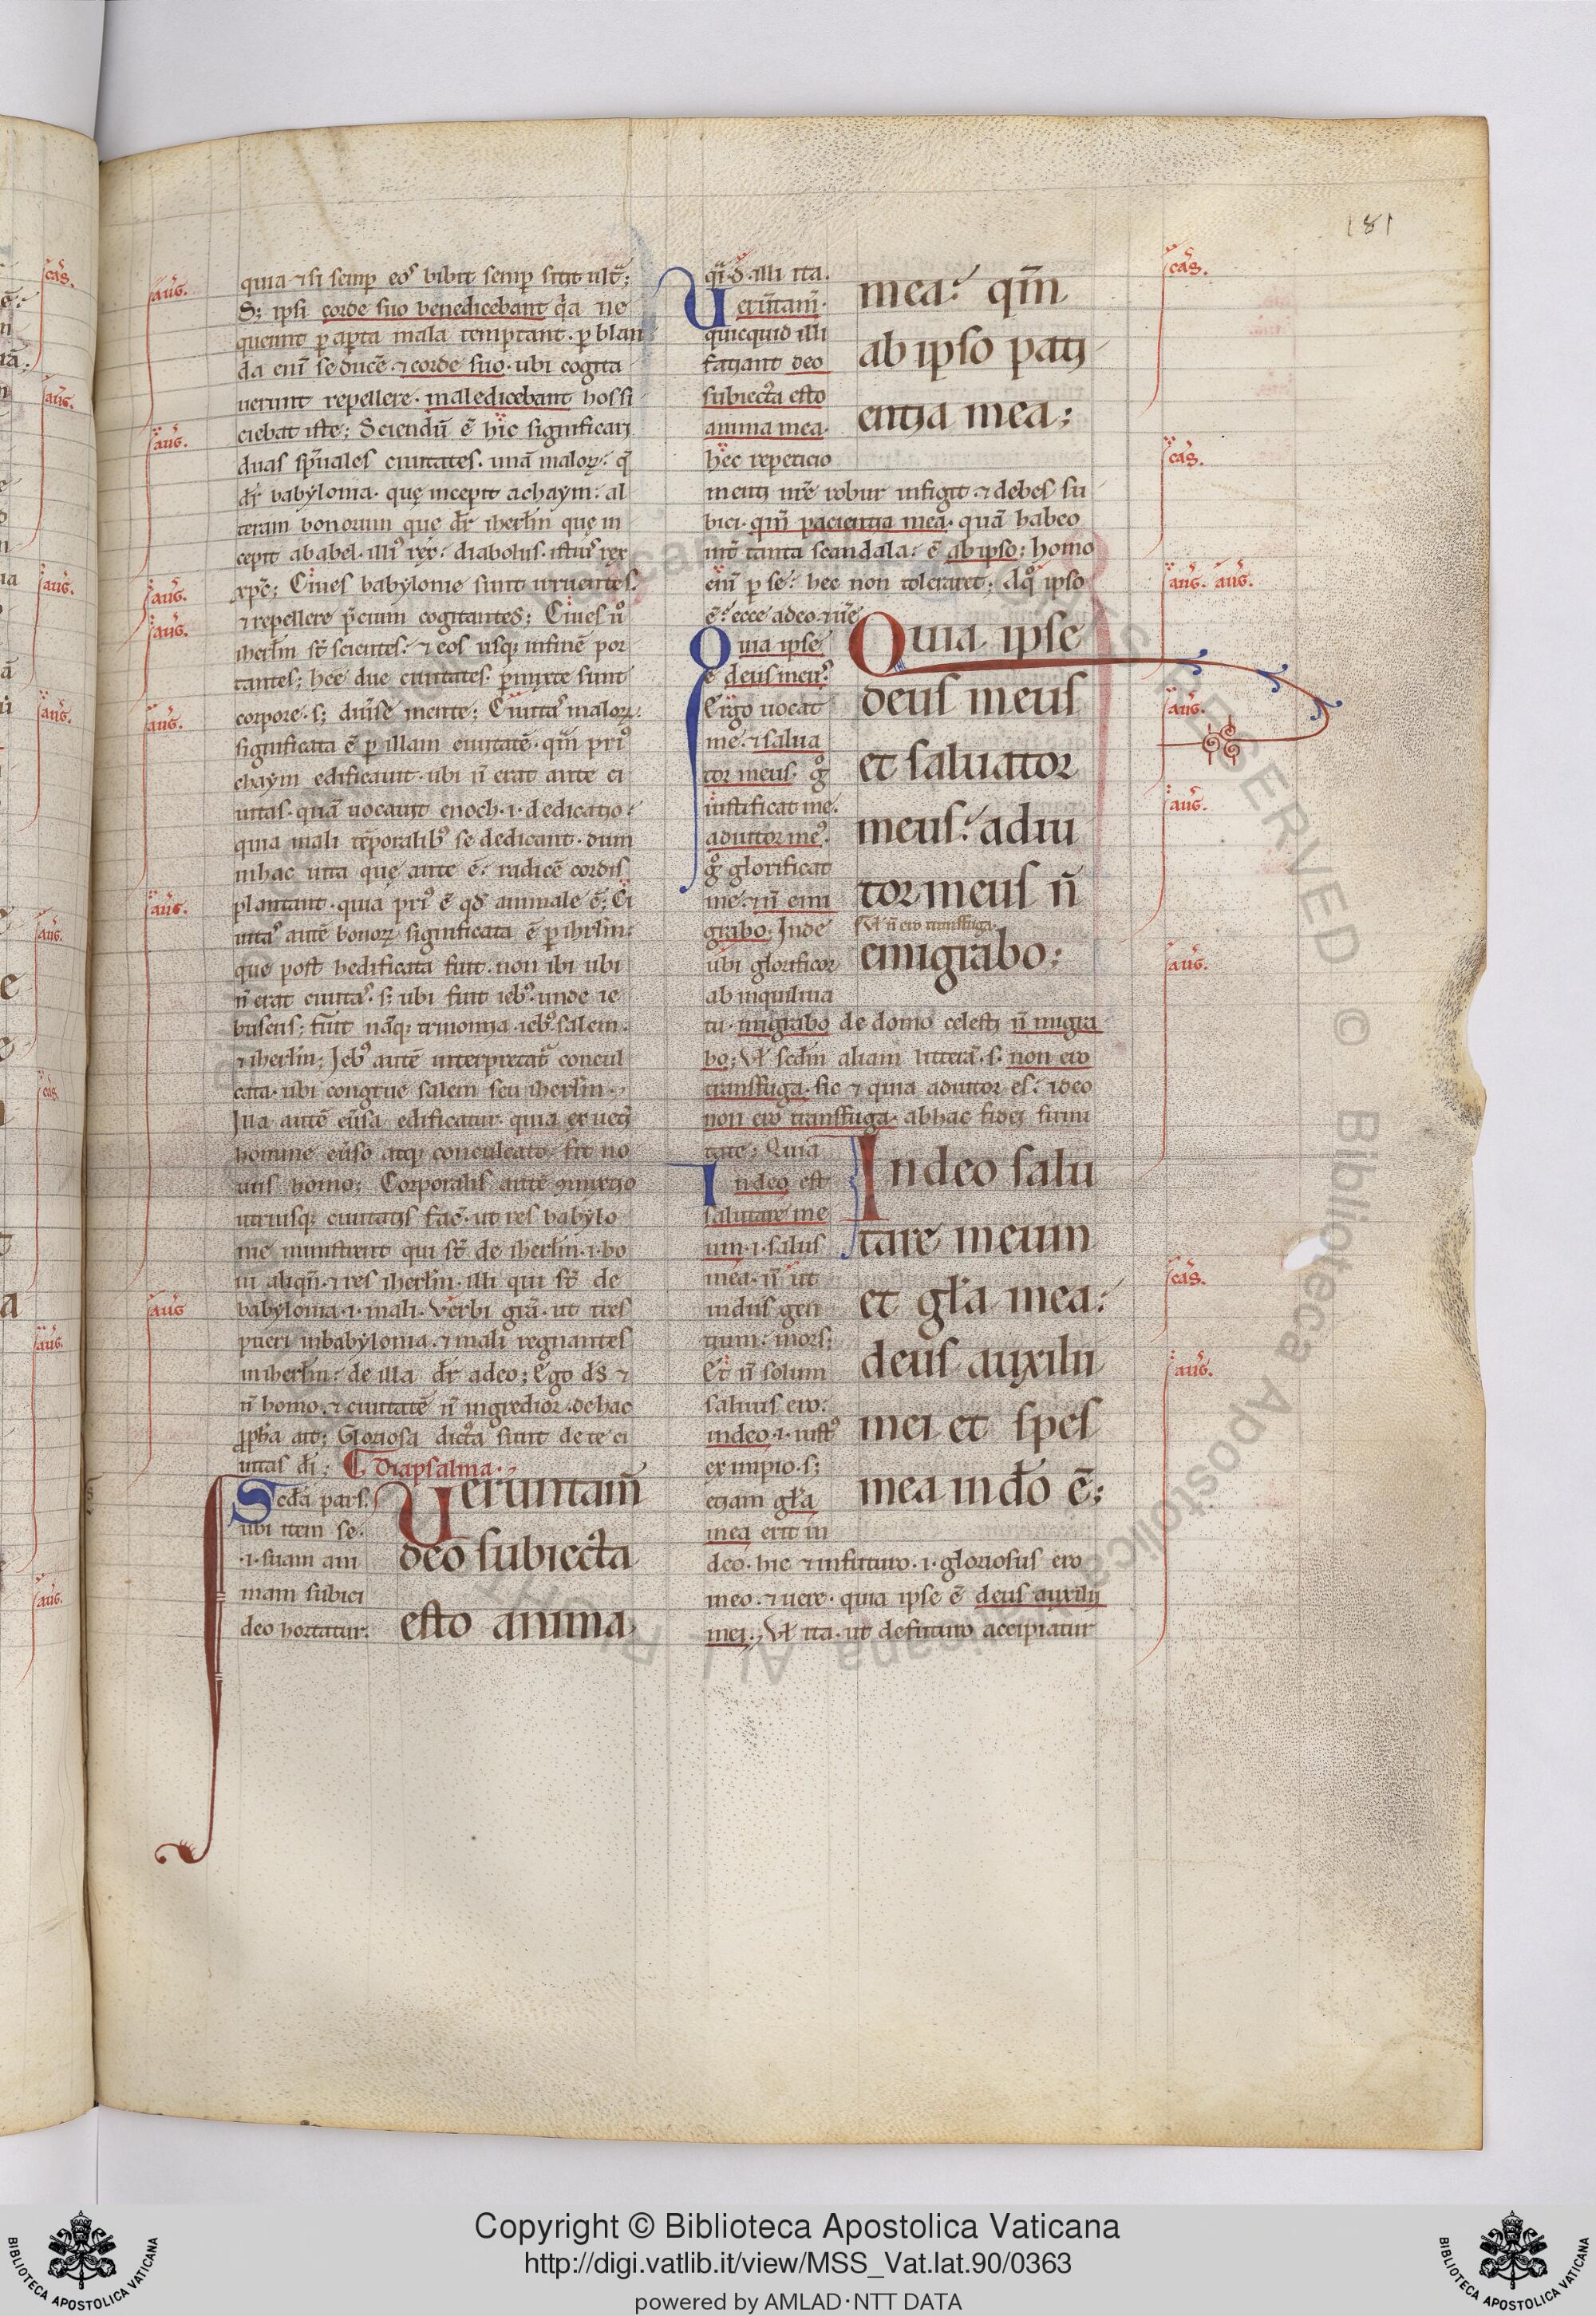 181
quia ⁊ si semp eos bibit semp sitit ult̃;
S; ipsi corde suo benedicebant q̃a ne
queunt p apta mala temptant. p blan
da eni᷑ seduc̃e. ⁊ corde suo. ubi cogita
uerunt repellere. maledicebant hoſ ſi
ciebat iste; Sciendũ ẽ hic significari
duas sp̃uales ciuitates. unã maloꝝ: q̃
dr̃ babylonia. quę incepit a chaym: al
teram bonorum quę dr̃ iherl̃m quę in
cepit ab abel. illi᷒ rex: diabolus. isti᷒ rex
xp̃c; Ciues babylonie sunt irruentes.
⁊ repellere p̃cium cogitantes; Ciues u͛o
iherl̃m st̃ scientes: ⁊ eos usq; in finẽ por
tantes; hee due ciuitates. pmixte sunt
corpore. s; diuise mente; Ciuita᷒ maloꝝ:
significata ẽ p illam ciuitatẽ. qm̃ pri᷒
chaym edificauit. ubi ñ erat ante ci
uitas. quã uocauit enoch. i. dedicatio:
quia mali tẽporalib᷒ se dedicant. dum
in hac uita quę ante ẽ: radicẽ cordis
plantant. quia pri᷒ ẽ qđ animale ẽ; Ci
uita᷒ autẽ bonoꝝ significata ẽ p ihrl̃m:
que post hedificata fuit. non ibi ubi
ñ erat ciuita᷒. s; ubi fuit ieb᷒. unde ie
buseus; fuit nãq; trinomia. ieb᷒. salem.
⁊ iherl̃m; Ieb᷒ autẽ interpretat᷑ concul
cata. ubi congrue salem seu iherl̃m.
Illa autẽ eũsa edificatur. quia ex ueti
homine eũso atq; conculcato. fit no
uus homo; Corporalis autẽ ꝯmixtio
utriusq; ciuitatis fac̃. ut res babylo
nie ministrent qui st̃ de iherl̃m. i. bo
ni aliqñ. ⁊ res iherl̃m. illi qui st̃ de
babylonia. i. mali. Verbi grã. ut tres
pueri in babylonia. ⁊ mali regnantes
in iherl̃m: de illa dr̃ a deo; Ego dś ⁊
ñ homo. ⁊ ciuitatẽ ñ ingredior. de hac
ꝓpħa ait; Gloriosa dicta sunt de te ci
uitas dĩ; Diapsalma.
Scd̃a pars.
ubi item se.
.i. suam ani
mam subici
deo hortatur.
Ueruntam̃
deo subiecta
esto anima
q̃i d. illi ita.
Ueru̅tam̃.
quicquid illi
faciant deo
subiecta esto
anima mea.
hec repeticio
menti nr̃e robur infigit. ⁊ debes su
bici. qm̃ paciencia mea. quã habeo
int̃ tanta scandala: ẽ ab ipso; homo
eni᷑ p se: hec non toleraret; A quo ipso
ẽ: ecce a deo.
mea: qm̃
ab ipso pati
entia mea;
Quia ipse
ẽ deus meu᷒.
Ergo uocat
me. ⁊ salua
tor meus. g͛
iustificat me.
adiutor me᷒.
g͛ glorificat
me. ⁊ ñ emi
grabo; Inde
ubi glorificor
ab inquilina
Quia ipse
deus meus
et saluator
meus: adiu
tor meus ñ
Vł ñ ero transfuga.
emigrabo;
tu. migrabo de domo celesti ñ migra
bo; Vł scd̃m aliam litterã. s. non ero
transfuga. sic ⁊ quia adiutor es: ideo
non ero transfuga. ab hac fidei firmi
tate; Quia
In deo est
salutare me
um. i. salus
mea. ñ ut
indus gen
tium: mors;
Et ñ solum
saluus ero:
in deo. i. iust᷒
ex impio. s;
etiam gła
mea erit in
In deo salu
tare meum
et gła mea:
deus auxilii
mei et spes
mea in do̅ ẽ;
deo. hic ⁊ in futuro. i. gloriosus ero
in eo. ⁊ uere. quia ipse ẽ deus auxilii
mei. Vł ita. ut de futuro accipiatur
aug.
aug.
aug.
aug.
aug.
aug.
aug
cas.
cas.
aug. aug.
aug.
aug.
aug.
cas.
aug.
Copyright © Biblioteca Apostolica Vaticana
http://digi.vatlib.it/view/MSS_Vat.lat.90/0363
powered by AMLAD·NTT DATA
BIBLIOTECA APOSTOLICA VATICANA
BIBLIOTECA APOSTOLICA VATICANA